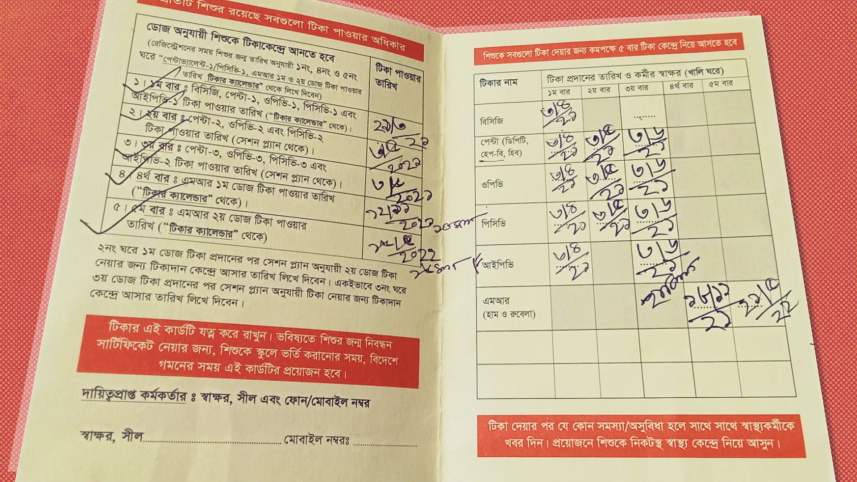 প্রতিটি শিশুর রয়েছে সবগুলো টিকা পাওয়ার অধিকার
ডোজ অনুযায়ী শিশুকে টিকাকেন্দ্রে আনতে হবে
(রেজিস্ট্রেশনের সময় শিশুর জন্ম তারিখ অনুযায়ী ১নং, ৪নং ও ৫নং
ঘরে "পেন্টাভ্যালেন্ট-১/পিসিভি-১, এমআর ১ম ও ২য় ডোজ টিকা পাওয়ার
তারিখ টিকার ক্যালেন্ডার" থেকে লিখে দিবেন)
টিকা পাওয়ার
তারিখ
১। ১ম বার ঃ বিসিজি, পেন্টা-১, ওপিভি-১, পিসিভি-১ এবং
আইপিভি-১ টিকা পাওয়ার তারিখ ("টিকার ক্যালেন্ডার" থেকে)।
২। ২য় বার ঃ পেন্টা-২, ওপিভি-২ এবং পিসিভি-২
টিকা পাওয়ার তারিখ (সেশন প্ল্যান থেকে)।
৩। ৩য় বার ঃ পেন্টা-৩, ওপিভি-৩, পিসিভি-৩ এবং
আইপিভি-২ টিকা পাওয়ার তারিখ (সেশন প্ল্যান থেকে)।
৪। ৪র্থ বার ঃ এমআর ১ম ডোজ টিকা পাওয়ার তারিখ
("টিকার ক্যালেন্ডার" থেকে)।
২০২১
৫। ৫ম বার ঃ এমআর ২য় ডোজ টিকা পাওয়ার
তারিখ ("টিকার ক্যালেন্ডার" থেকে)
২০২২
২নং ঘরে ১ম ডোজ টিকা প্রদানের পর সেশন প্ল্যান অনুযায়ী ২য় ডোজ টিকা
নেয়ার জন্য টিকাদান কেন্দ্রে আসার তারিখ লিখে দিবেন। একইভাবে ৩নং ঘরে
৩য় ডোজ টিকা প্রদানের পর সেশন প্ল্যান অনুযায়ী টিকা নেয়ার জন্য টিকাদান
কেন্দ্রে আসার তারিখ লিখে দিবেন।
টিকার এই কার্ডটি যত্ন করে রাখুন। ভবিষ্যতে শিশুর জন্ম নিবন্ধন
সার্টিফিকেট নেয়ার জন্য, শিশুকে স্কুলে ভর্তি করানোর সময়, বিদেশে
গমনের সময় এই কার্ডটির প্রয়োজন হবে।
দায়িত্বপ্রাপ্ত কর্মকর্তার ঃ স্বাক্ষর, সীল এবং ফোন/মোবাইল নম্বর
স্বাক্ষর, সীল ........ মোবাইল নম্বরঃ ........
শিশুকে সবগুলো টিকা দেয়ার জন্য কমপক্ষে ৫ বার টিকা কেন্দ্রে নিয়ে আসতে হবে
টিকার নাম
টিকা প্রদানের তারিখ ও কর্মীর স্বাক্ষর (খালি ঘরে)
১ম বার ২য় বার ৩য় বার ৪র্থ বার ৫ম বার
বিসিজি ৩/৪/২১
পেন্টা (ডিপিটি,
হেপ-বি, হিব) ৩/৪/২১ ৩/৫/২১ ৩/৬/২১
ওপিভি ৩/৪/২১ ৩/৫/২১ ৩/৬/২১
পিসিভি ৩/৪/২১ ৩/৫/২১ ৩/৬/২১
আইপিভি ৩/৪/২১ ৩/৬/২১
এমআর
(হাম ও রুবেলা)
টিকা দেয়ার পর যে কোন সমস্যা/অসুবিধা হলে সাথে সাথে স্বাস্থ্যকর্মীকে
খবর দিন। প্রয়োজনে শিশুকে নিকটস্থ স্বাস্থ্য কেন্দ্রে নিয়ে আসুন।